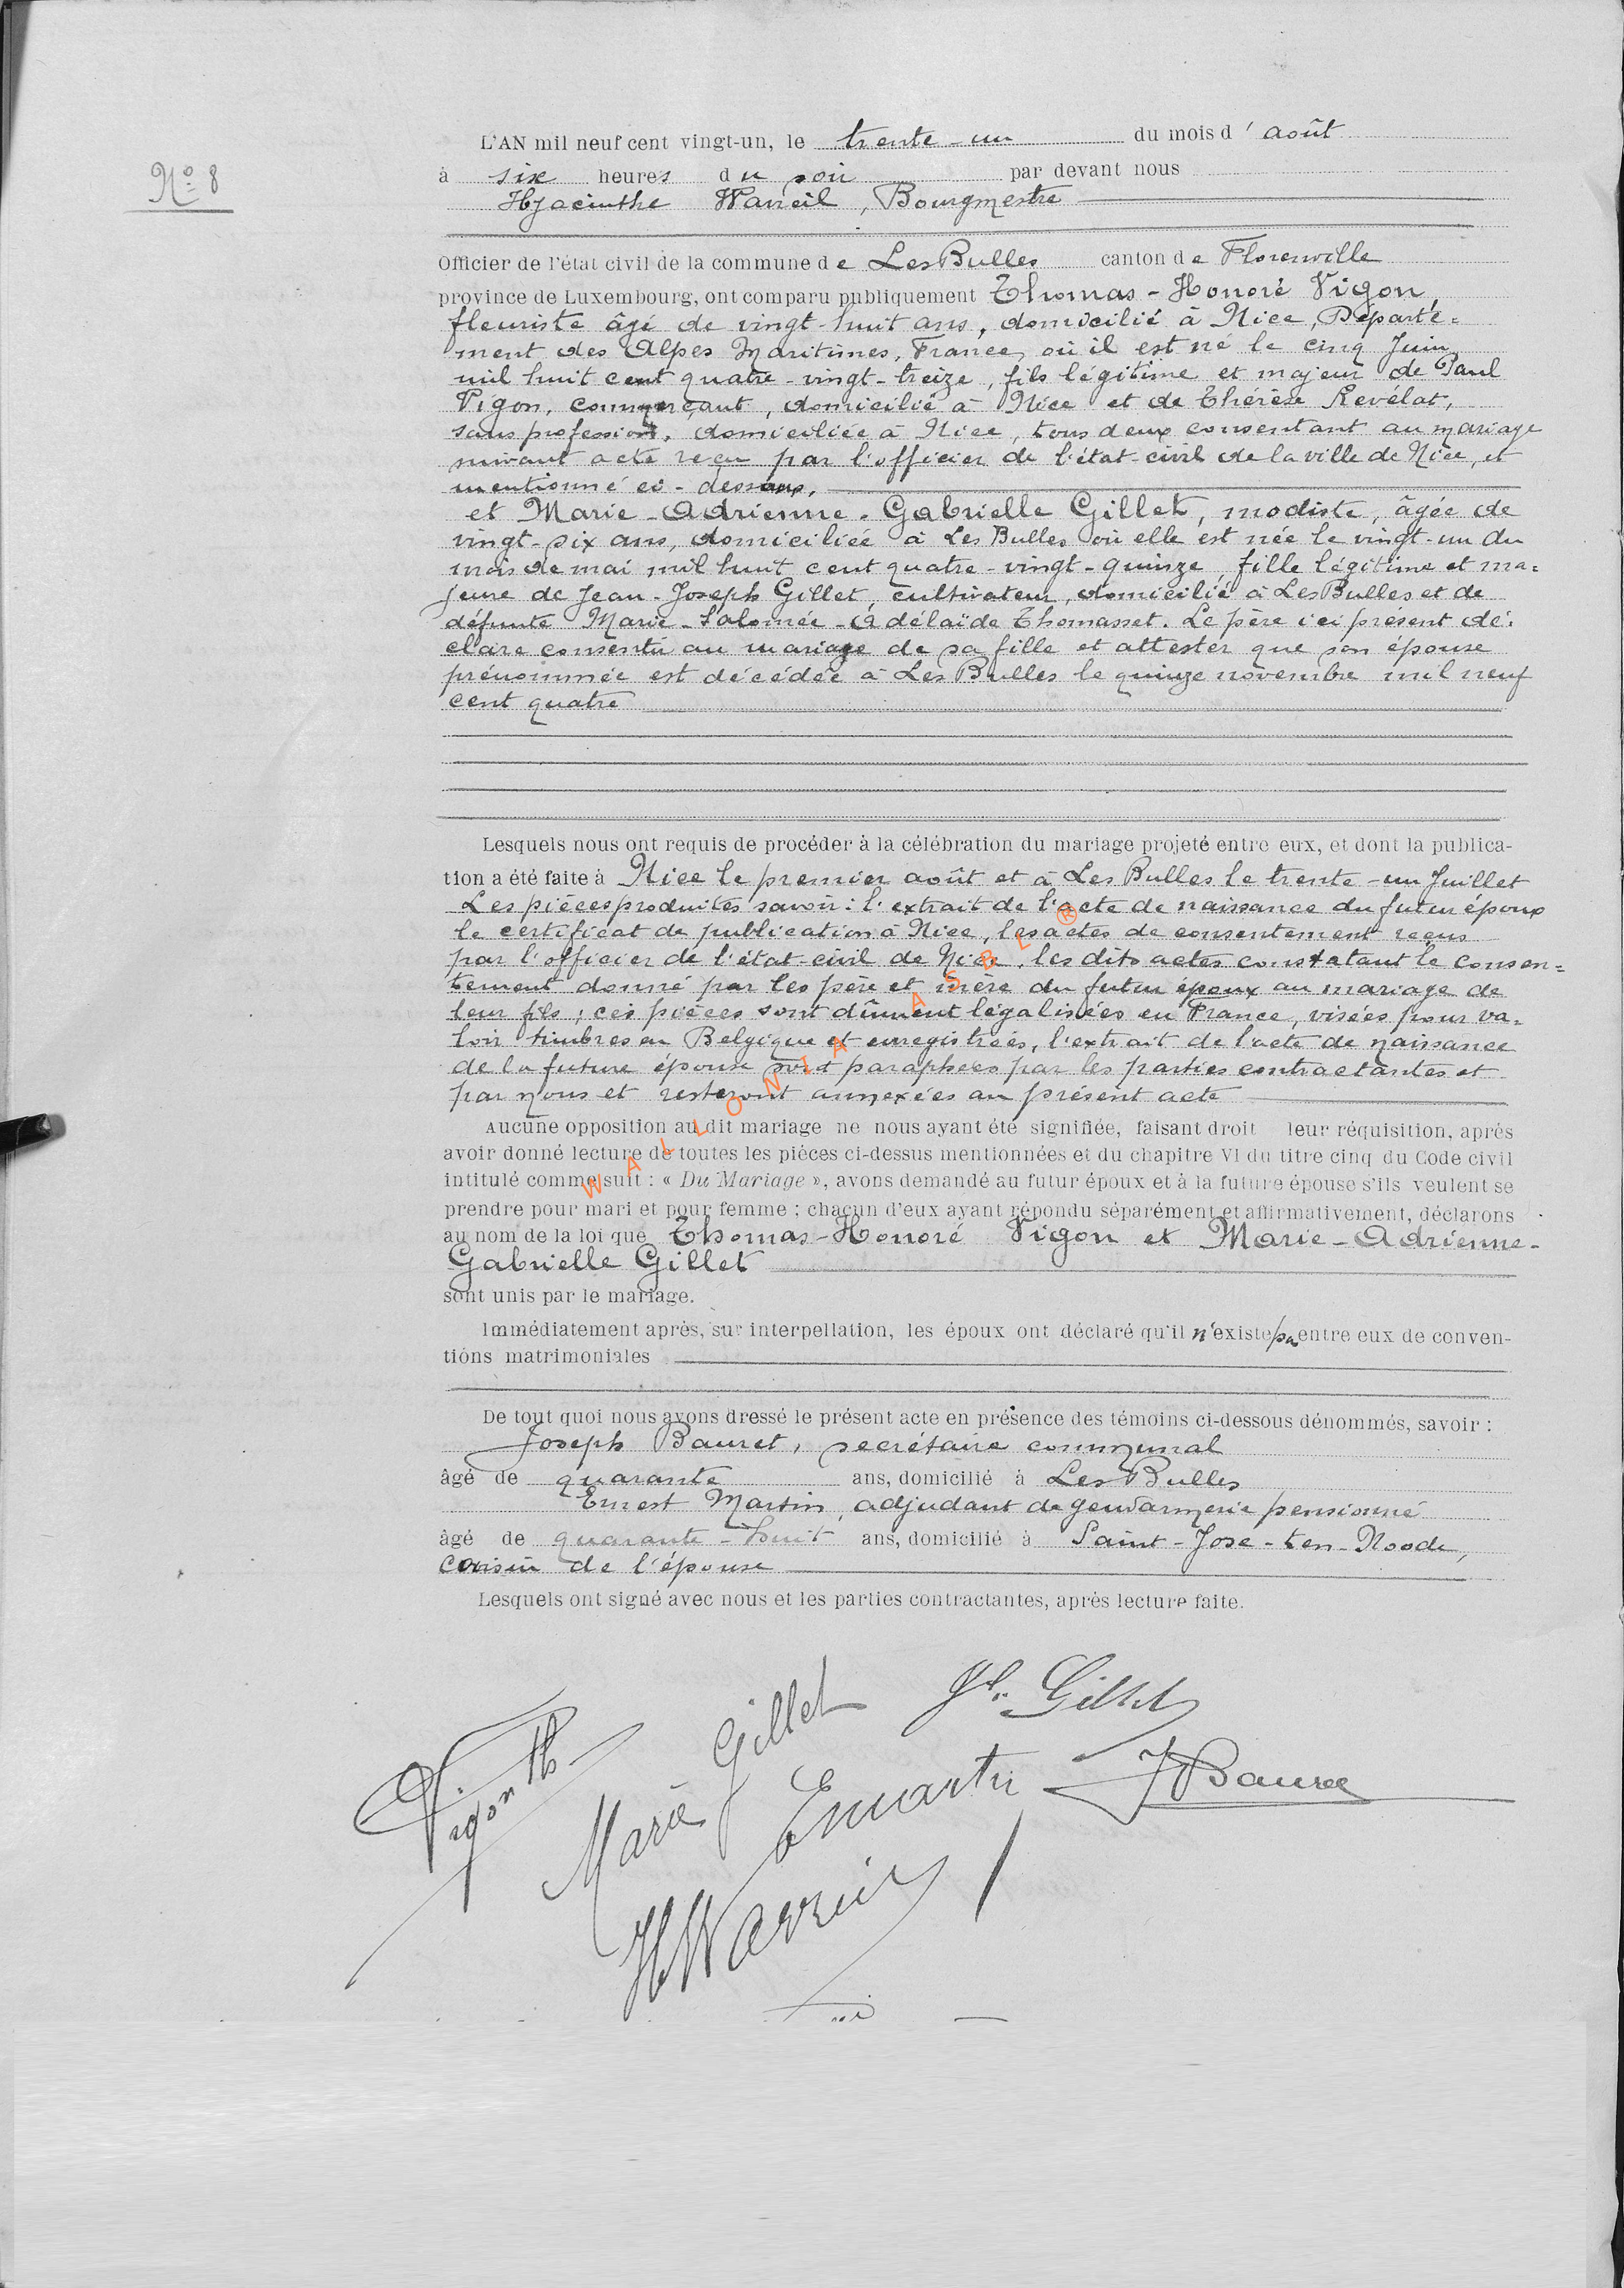 N° 8
L'AN mil neuf cent vingt-un, le trente-un du mois d'août
à six heures du soir par devant nous
Hyacinthe Warzeil, Bourgmestre
Officier de l'état civil de la commune de Les Bulles canton de Florenville
province de Luxembourg, ont comparu publiquement Thomas-Honoré Vigon,
fleuriste âgé de vingt-huit ans, domicilié à Nice, Départe=
ment des Alpes Maritimes, France, où il est né le cinq Juin
mil huit cent quatre-vingt-treize, fils légitime et majeur de Paul
Vigon, commerçant, domicilié à Nice et de Thérèse Revélat,
sans profession, domiciliée à Nice, tous deux consentant au mariage
suivant acte reçu par l'officier de l'état-civil de la ville de Nice, et
mentionné ci-dessous,
et Marie-Adrienne-Gabrielle Gillet, modiste, âgée de
vingt-six ans, domiciliée à Les Bulles où elle est née le vingt-un du
mois de mai mil huit cent quatre-vingt-quinze fille légitime et ma=
jeure de Jean-Joseph Gillet, cultivateur, domicilié à Les Bulles et de
défunte Marie-Salomée-Adélaïde Thomasset. Le père ici présent dé=
clare consentir au mariage de sa fille et attester que son épouse
prénommée est décédée à Les Bulles le quinze novembre mil neuf
cent quatre
Lesquels nous ont requis de procéder à la célébration du mariage projeté entre eux, et dont la publica-
tion a été faite à Nice le premier août et à Les Bulles le trente-un Juillet
Les pièces produites savoir: l'extrait de l'acte de naissance du futur époux
le certificat de publication à Nice, les actes de consentement reçus
par l'officier de l'état-civil de Nice, les dits actes constatant le consen=
tement donné par les père et mère du futur époux au mariage de
leur fils; ces pièces sont dûment légalisées en France, visées pour va=
loir timbres en Belgique et enregistrées, l'extrait de l'acte de naissance
de la future épouse sont paraphées par les parties contractantes et
par nous et resteront annexées au présent acte
Aucune opposition au dit mariage ne nous ayant été signifiée, faisant droit leur réquisition, après
avoir donné lecture de toutes les pièces ci-dessus mentionnées et du chapitre VI du titre cinq du Code civil
intitulé comme suit : « Du Mariage », avons demandé au futur époux et à la future épouse s'ils veulent se
prendre pour mari et pour femme ; chacun d'eux ayant répondu séparément et affirmativement, déclarons
au nom de la loi que Thomas-Honoré Vigon et Marie-Adrienne-
Gabrielle Gillet
sont unis par le mariage.
Immédiatement après, sur interpellation, les époux ont déclaré qu'il n'existe pas entre eux de conven-
tions matrimoniales
De tout quoi nous avons dressé le présent acte en présence des témoins ci-dessous dénommés, savoir :
Joseph Bauret, secrétaire communal
âgé de quarante ans, domicilié à Les Bulles
Ernest Martin, adjudant de gendarmerie pensionné
âgé de quarante-huit ans, domicilié à Saint-Jose-ten-Noode,
cousin de l'épouse
Lesquels ont signé avec nous et les parties contractantes, après lecture faite.
Vigon Th
Marie Gillet
Gillet
Emartin
J Bauret
WALLONIA ASBL ®